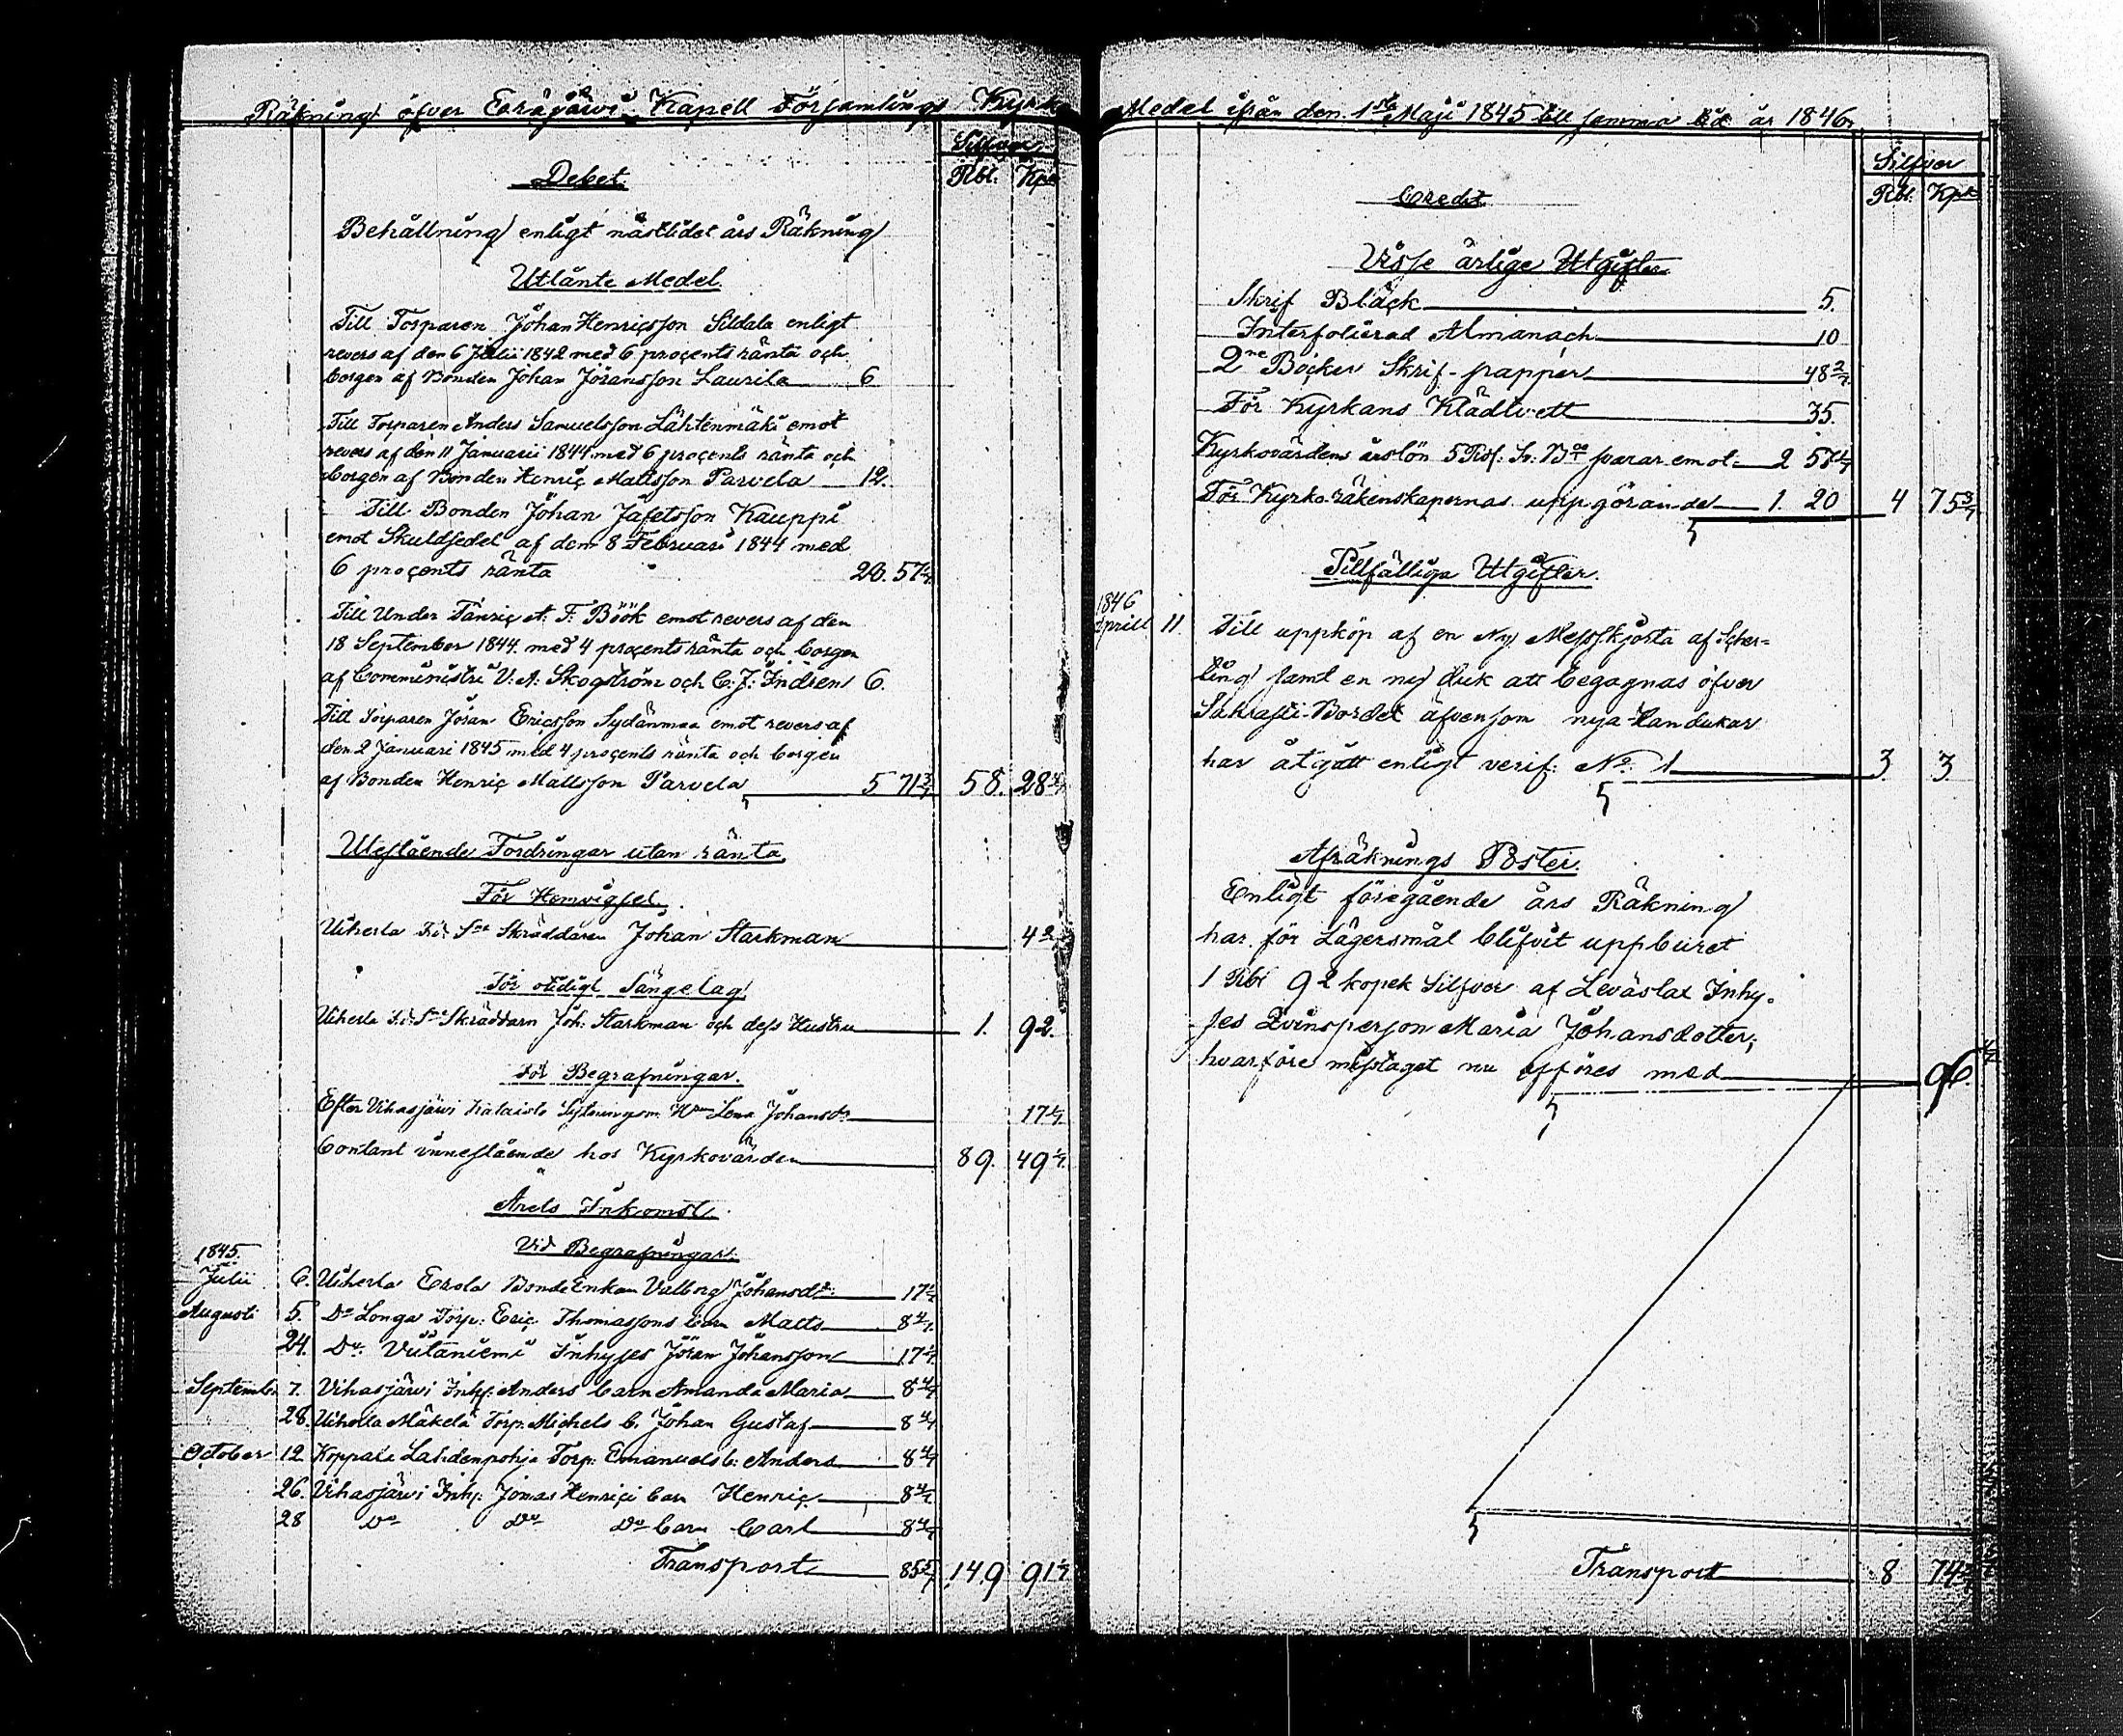 Räkning öfver Eräjärvi Kapell Församlings Kyrko
Silfver
Debet.
Rbl. Kpk
Behållning enligt nästlidet års Räkning
Utlånte Medel.
Till Torparen Johan Henricsson Sildala enligt
revers af den 6 Julii 1842 med 6 procents ränta och
borgen af Bonden Johan Jöransson Laurila 6
Till Torparen Anders Samuelsson Lähtenmäki emot
revers af den 11 Januarii 1844 med 6 procents ränta och
borgen af Bonden Henric Mattsson Parvela 12.
Till Bonden Johan Jafetsson Kauppi
emot Skuldsedel af dem 8 Februari 1844 med
6 procents ränta 28. 57 1/7
Till Under A. F. Böök emot revers af den
18 September 1844. med 4 procents ränta och borgen
af Comministri V. A. Skogström och C. J. Indren 6.
Till Torparen Jöran Ericsson Sydänmaa emot revers af
den 2 Januari 1845 med 4 procents ränta och borgen
af Bonden Henric Mattsson Parvela 5 71 3/7 58. 28 4/7
Utestående Fordringar utan ränta
För Hemvigsel.
Uiherla Skräddaren Johan Starkman 42
För otidigt Sängelag
Uiherla Skräddarn Joh: Starkman och dess Hustru 1. 92.
För Begrafningar.
Efter Vihasjärvi Lena Johansdr 17 1/7
Contant innestående hos Kyrkovärden 89. 49 1/7
Årets Inkomst.
Vid Begrafningar.
1845.
Julii 6. Uiherla Erola BondeEnkan Valborg Johansdr: 17 1/7
Augusti 5. Do Longa Torp: Eric Thomassons barn Matts 8 4/7
24. Do Viitaniemi Inhyses Jöran Johansson 17 1/7
September 7. Vihasjärvi Inhy: Anders barn Amanda Maria 8 4/7
28. Uiherla Mäkelä Torp: Michels b. Johan Gustaf 8 4/7
October 12 Koppala Lahdenpohja Torp: Emanuels b: Anders 8 4/7
26. Vihasjärvi Inhy: Jonas Henrici barn Henric 8 4/7
28 Do Do Do barn Carl 8 4/7
Transport 85 5/7 149 91 1/7
Medel ifrån den 1sta Maji 1845 till samma tid år 1846.
Silfver
Credit
Rbl. Kpk
Visse årlige Utgifter
Skrif Bläck 5.
Interfolierad Almanach 10
2ne Böcker Skrif-papper 48 2/7
För Kyrkans Klädtvett 35.
Kyrkovärdens årslön 5 Rdr. svarar emot 2 57 1/7
För Kyrko-räkenskapernas uppgörande 1. 20 4 75 3/7
Tillfällige Utgifter.
1846
Aprill 11. Till uppköp af en Ny Messskjorta af Scher-
ting samt en ny duk att begagnas öfver
Sakrasti-Bordet äfvensom nya Handukar
har åtgått enligt verif: No: 1 3 3
Afräknings Poster.
Enligt föregående års Räkning
har för Lägersmål blifvit uppburet
1 Rbl 92 kopek Silfver af Leväslax Inhy-
ses Qvinsperson Maria Johansdotter;
hvarföre misstaget nu afföres med 96.
Transport 8 74